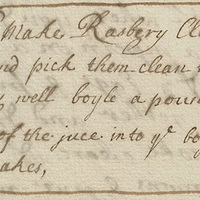 Make Rasbery Cle
nd pick them clean
well boyle a pound
of the juce into yᵉ bo
akes,